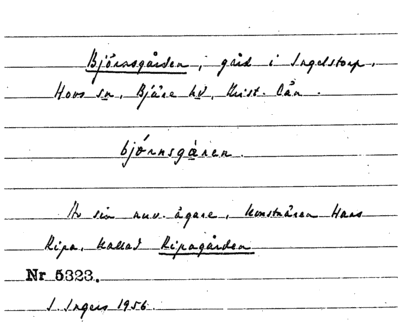 Björnsgården, gård i Ingelstorp,
Hovs sn, Bjäre hd, Krist. län.
björnsgåren.
Av sin nuv. ägare, konstnären Hans
Ripa, kallad Ripagården
Nr 5323.
I. Ingers 1956.